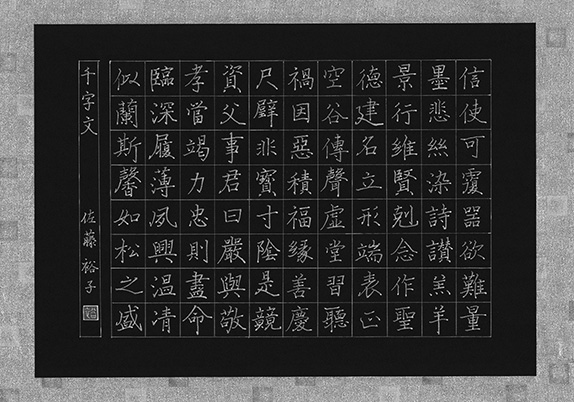 信使可覆器欲難量
墨悲絲染詩讃羔羊
景行維賢剋念作聖
德建名立形端表正
空谷傳聲虛堂習聽
禍因惡積福緣善慶
尺璧非寶寸陰是競
資父事君曰嚴與敬
孝當竭力忠則盡命
臨深履薄夙興溫凊
似蘭斯馨如松之盛
千字文 佐藤裕子